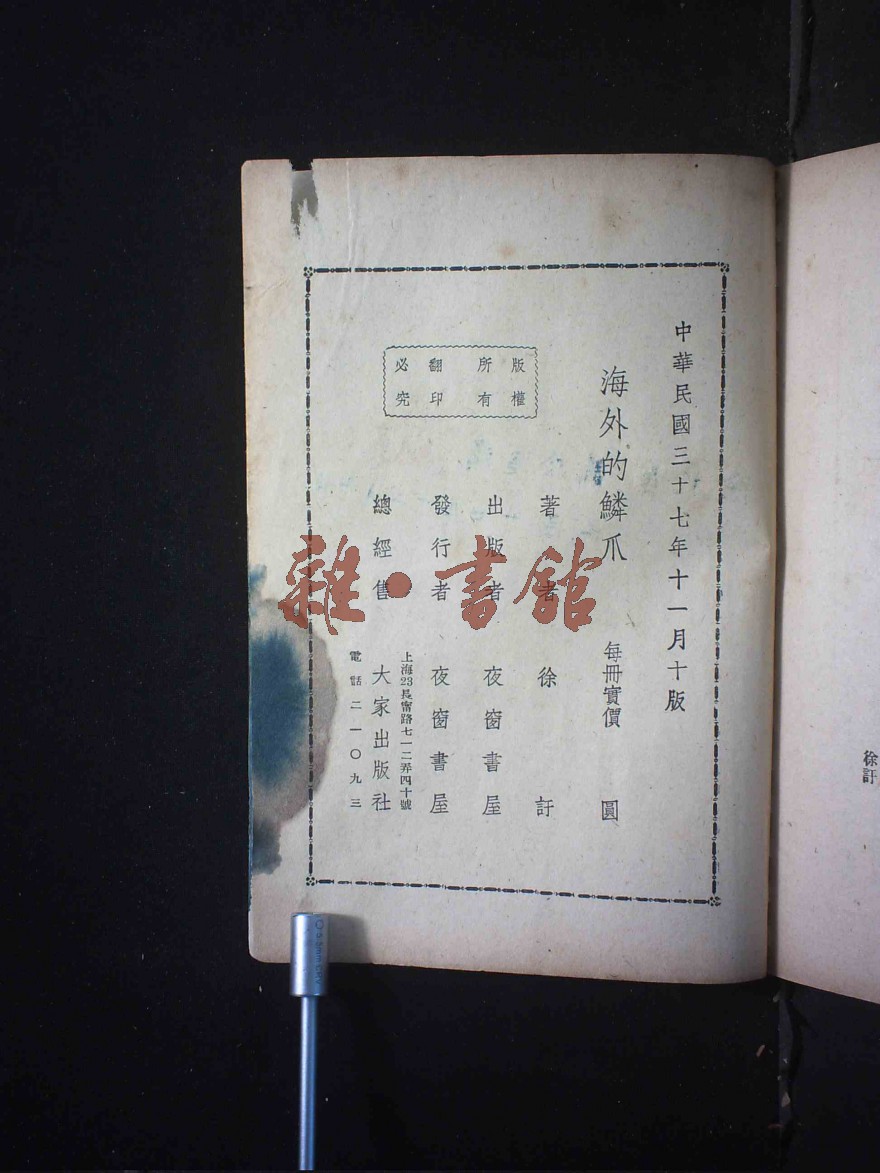 中華民國三十七年十一月十版
海外的鱗爪 每冊實價 圓
著者 徐訏
出版者 夜窗書屋
發行者 夜窗書屋
上海23長甯路七一二弄四十號
總經售 大家出版社
電話二一〇九三
版權所有
翻印必究
雜·書館
徐訏